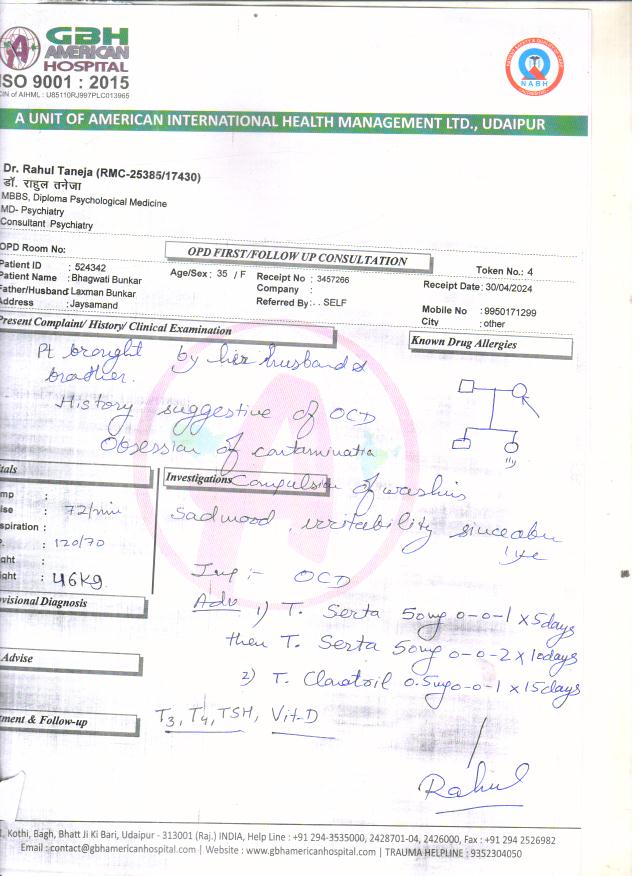 GBH
AMERICAN
HOSPITAL
ISO 9001 : 2015
CIN of AIHML : U85110RJ997PLC013965
NABH
A UNIT OF AMERICAN INTERNATIONAL HEALTH MANAGEMENT LTD., UDAIPUR
Dr. Rahul Taneja (RMC-25385/17430)
डॉ. राहुल तनेजा
MBBS, Diploma Psychological Medicine
MD- Psychiatry
Consultant Psychiatry
OPD Room No:
OPD FIRST/FOLLOW UP CONSULTATION
Token No.: 4
Patient ID : 524342
Patient Name : Bhagwati Bunkar
Father/Husband Laxman Bunkar
Address : Jaysamand
Age/Sex : 35 / F
Receipt No : 3457266
Company :
Referred By : . . SELF
Receipt Date : 30/04/2024
Mobile No : 9950171299
City : other
Present Complaint/ History/ Clinical Examination
Known Drug Allergies
Pt brought by her husband &
brother.
History suggestive of OCD
Obsession of contaminatio
11y
Compulsion of washing
Sad mood, irritability since abu
1ye
itals
mp :
lse : 72/min
spiration :
P. : 120/70
ght :
ight : 46Kg
Investigations
Imp :- OCD
ovisional Diagnosis
Adv 1) T. Serta 50mg 0-0-1 x 5days
then T. Serta 50mg 0-0-2 x 10days
2) T. 0.5mg 0-0-1 x 15days
Advise
tment & Follow-up
T3, T4, TSH, Vit-D
Rahul
, Kothi, Bagh, Bhatt Ji Ki Bari, Udaipur - 313001 (Raj.) INDIA, Help Line : +91 294-3535000, 2428701-04, 2426000, Fax : +91 294 2526982
Email : contact@gbhamericanhospital.com | Website : www.gbhamericanhospital.com | TRAUMA HELPLINE : 9352304050